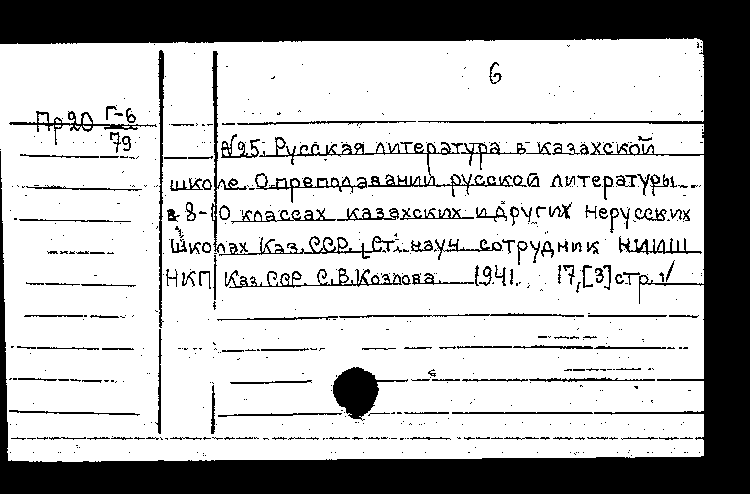 6
Пр20 Г-6
79
№25. Русская литература в казахской
школе. О преподавании русской литературы
в 8-10 классах казахских и других нерусских
школах Каз.ССР. [Ст. науч. сотрудник НИИШ
НКП Каз.ССР С.В.Козлова. 1941. 17,[3]стр.